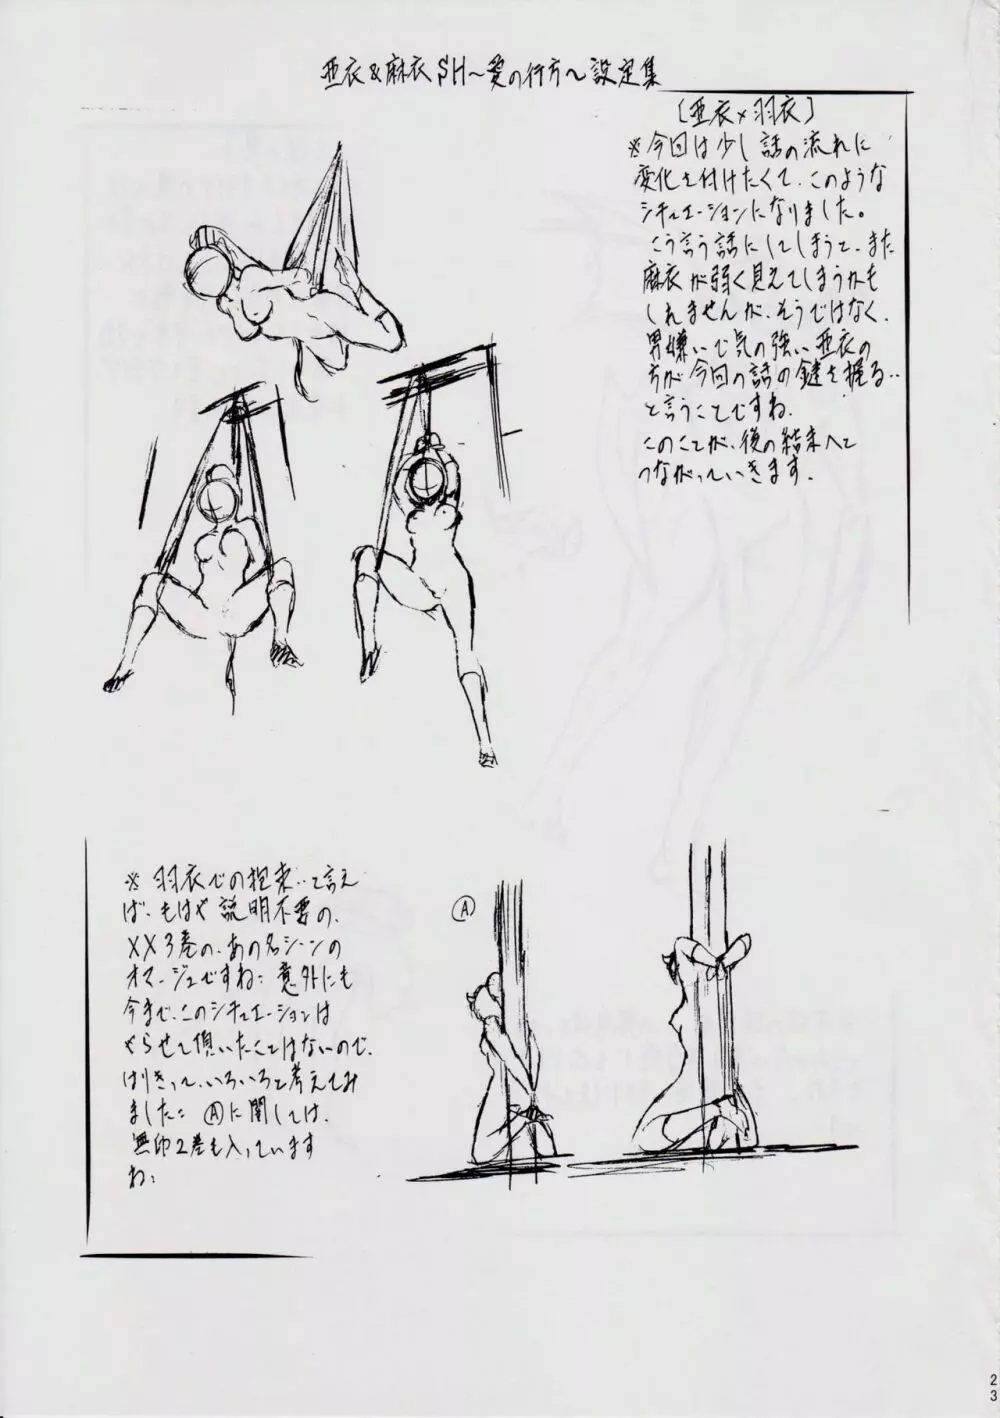 亜衣&麻衣SH～愛の行方～設定集
[亜衣×羽衣]
※今回は少し話の流れに
変化を付けたくて、このような
シチュエーションになりました。
こう言う話にしてしまうと、また
麻衣が弱く見えてしまうかも
しれませんが、そうではなく、
男嫌いで気の強い亜衣の
方が今回の話の鍵を握る‥
と言うことですね、
このことが、後の結末へと
つながっていきます。
※羽衣での拘束‥と言え
ば、もはや説明不要の、
XX3巻の、あの名シーンの
オマージュですね: 意外にも
今まで、このシチュエーションは
やらせて頂いたことはないので、
はりきって、いろいろと考えてみ
ました: Ⓐに関しては、
無印2巻も入っています
ね:
Ⓐ
23